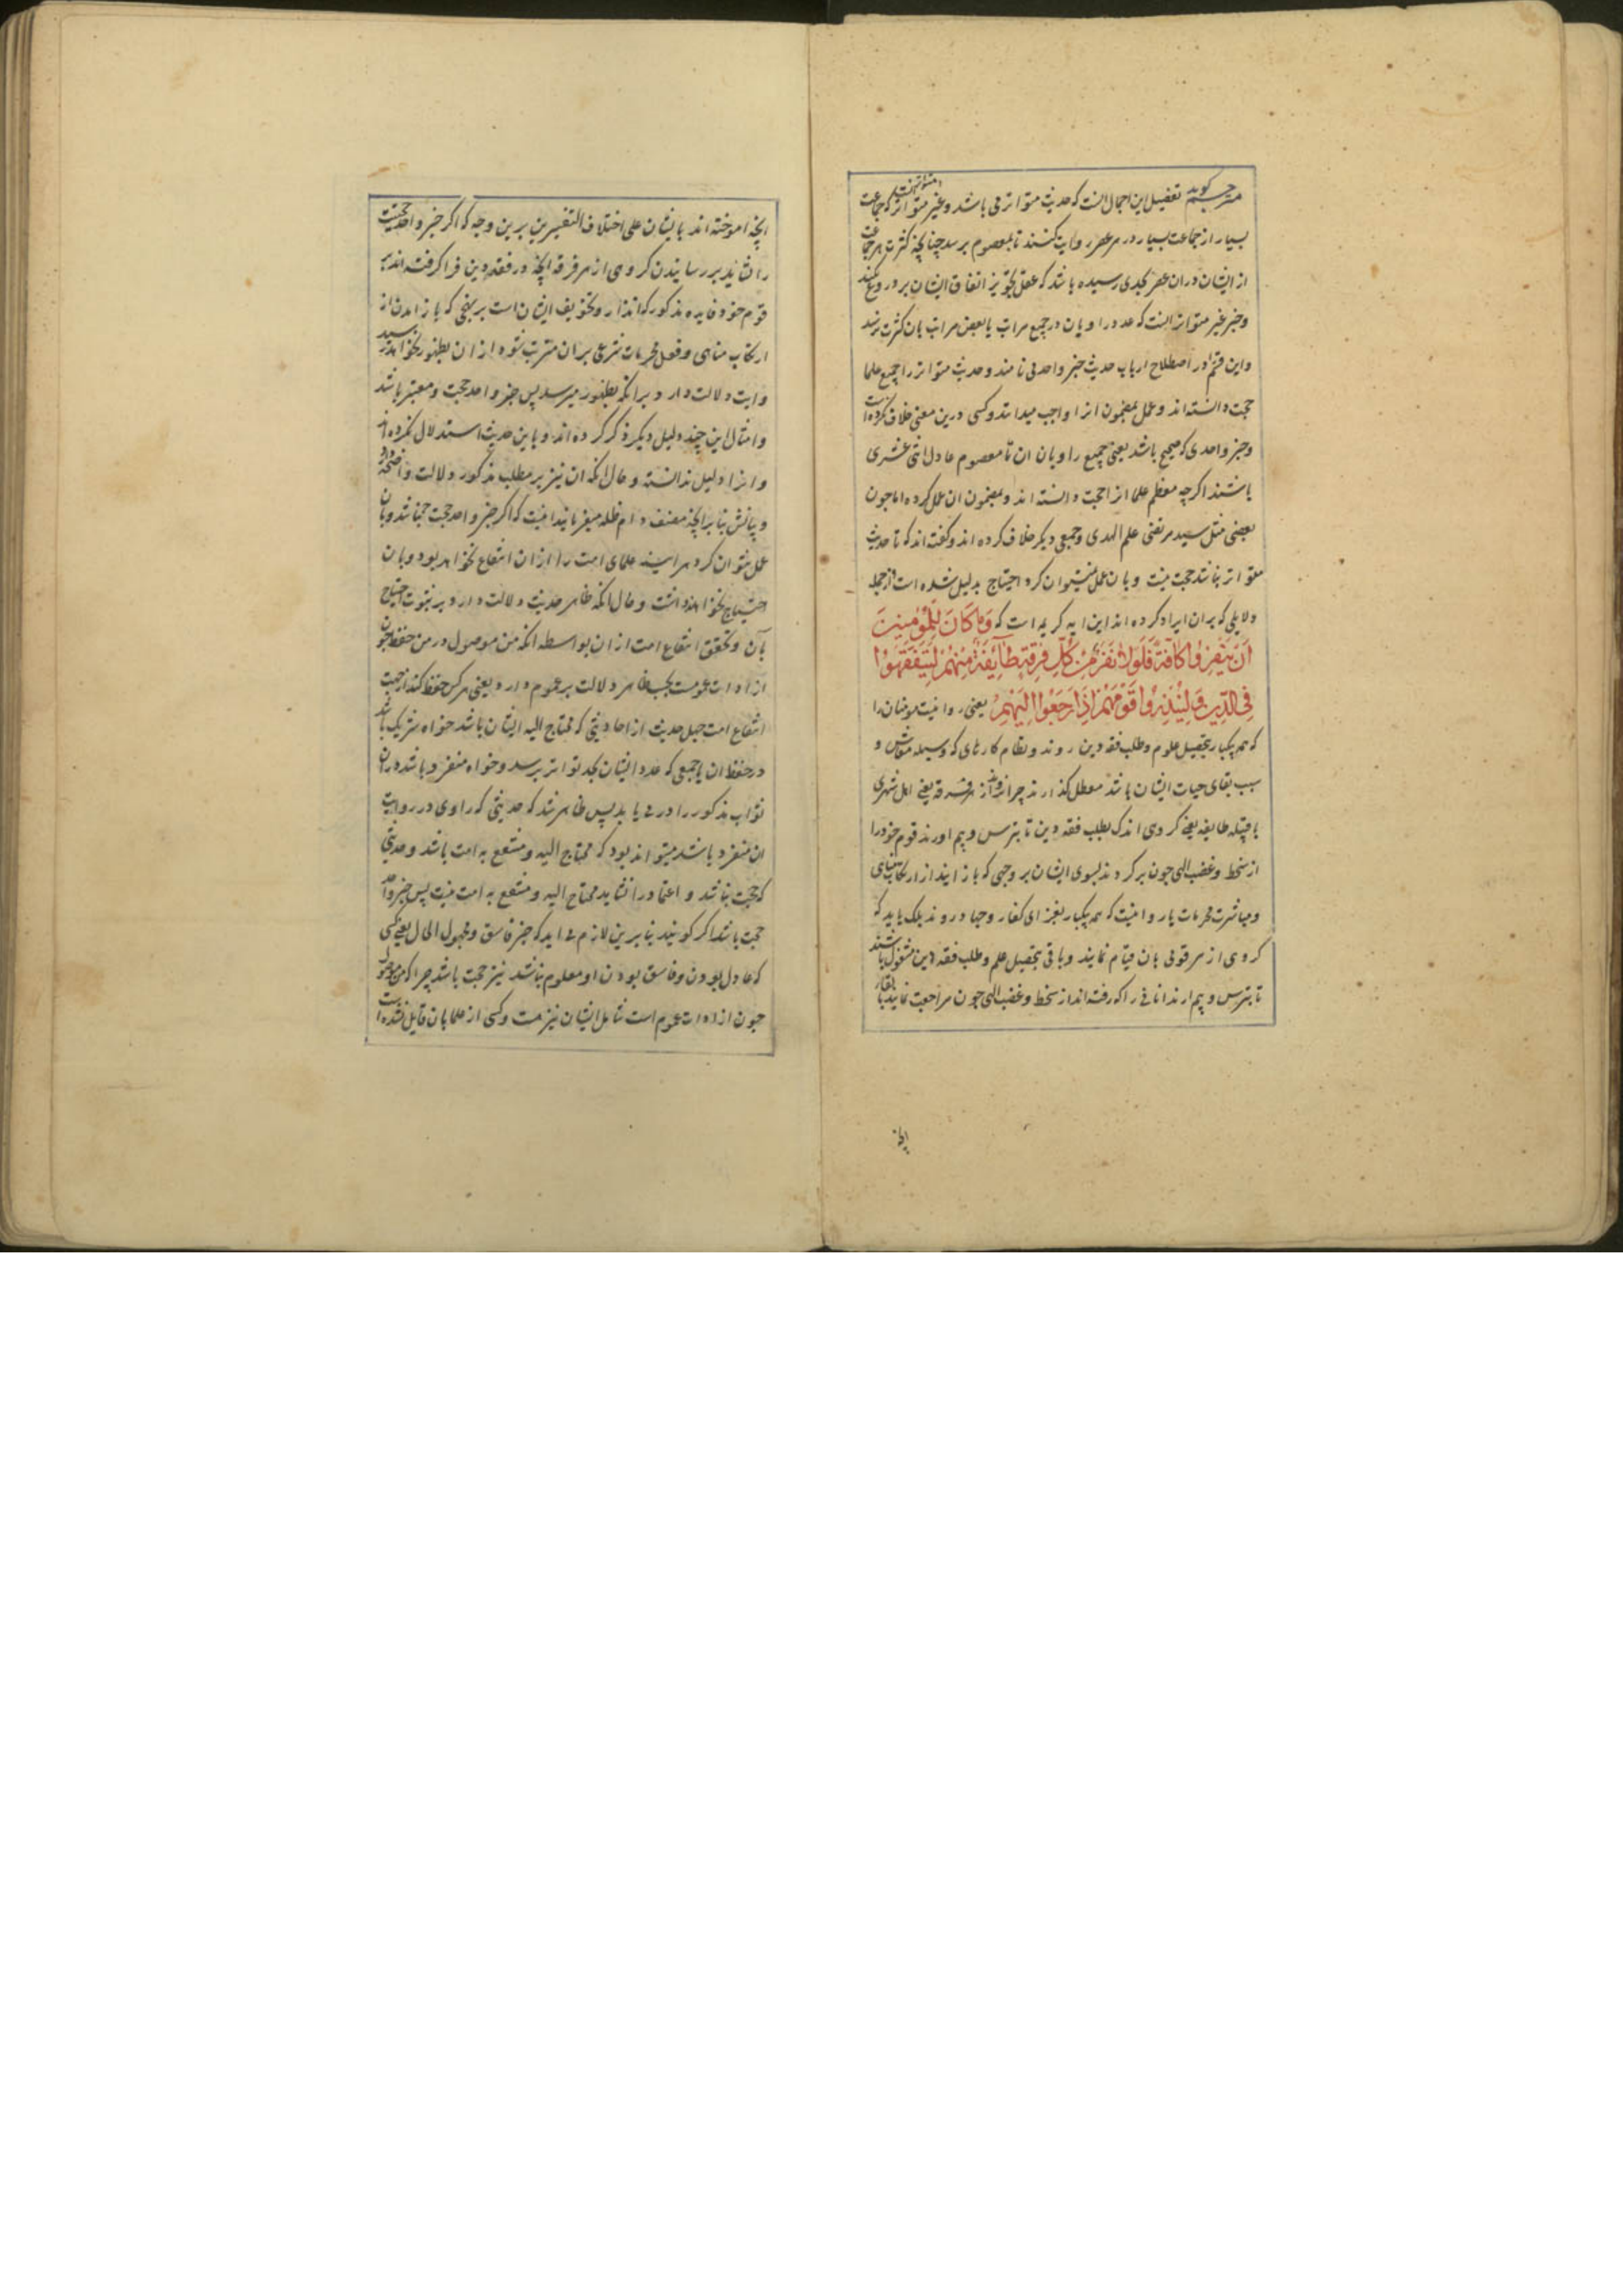 مترجم کوید تفصیل این اجمال انست که حدیث متواتر می باشد و غیر متواتر که جماعت
بسیار از جماعت بسیار در هر عصر روایت کنند تا بمعصوم برسد چنانچه کثرت هر جماعت
از ایشان در ان عصر بحدی رسیده باشد که عقل تجویز اتفاق ایشان بر دروغ نکند
و خبر غیر متواتر انست که عدد راویان در جمیع مراتب یا بعض مراتب بان کثرت نرسد
و این قسم در اصطلاح ارباب حدیث خبر واحد می نامند و حدیث متواتر را جمیع علما
حجت دانسته اند و عمل بمضمون انرا واجب میدانند و کسی درین معنی خلاف نکرده است
و خبر واحدی که صحیح باشد یعنی جمیع راویان ان تا معصوم عادل اثنی عشری
باشند اکرچه معظم علما انرا حجت دانسته اند و بمضمون ان عمل کرده اما چون
بعضی مثل سید مرتضی علم الهدی و جمعی دیکر خلاف کرده اند و کفته اند که تا حدیث
متواتر نباشد حجت نیست و بان عمل نمیتوان کرد احتیاج بدلیل شده است از جمله
دلایلی که بران ایراد کرده اند این ایه کریمه است که وَمَا كَانَ لِلْمُؤْمِنِينَ
اَنْ يَنْفِرُوا كَافَّةً فَلَوْلَا نَفَرَ مِنْ كُلِّ فِرْقَةٍ طَآئِفَةٌ مِنْهُمْ لِيَتَفَقَّهُوا
فِي الدِّينِ وَلِيُنْذِرُوا قَوْمَهُمْ اِذَا رَجَعُوا اِلَيْهِمْ یعنی روا نیست مومنان را
که همه یکبار بتحصیل علوم و طلب فقه دین روند و نظام کارهای که وسیله معاش و
سبب بقای حیات ایشان باشد معطل کذارند چرا نروند از هر فرقه یعنی اهل شهری
یا قبیله طایفه یعنی کروهی اندک بطلب فقه دین تا بترس و بیم اورند قوم خود را
از سخط و غضب الهی چون بر کردند بسوی ایشان بر وجهی که باز ایند از ارتکاب مناهی
و مباشرت محرمات یا روا نیست که همه یکبار بغزای کفار و جهاد روند بلکه باید که
کروهی از هر قومی بان قیام نمایند و باقی بتحصیل علم و طلب فقه دین مشغول باشند
تا بترس و بیم ارند انانی را که رفته اند از سخط و غضب الهی چون مراجعت نمایند
انچه
انچه اموخته اند بایشان علی اختلاف التفسیرین برین وجه که اکر خبر واحد حجیت
را نشاید بر رسانیدن کروهی از هر فرقه انچه در فقه دین فرا کرفته اند
قوم خود فایده مذکور که انذار و تخویف ایشان است بر نهجی که باز امدن از
ارتکاب مناهی و فعل محرمات شرعی بران مترتب شود ازان بظهور نخواهد رسید
و ایت دلالت دارد برانکه بظهور میرسد پس خبر واحد حجت و معتبر باشد
و امثال این چند دلیل دیکر ذکر کرده اند و باین حدیث استدلال نکرده اند
و انرا دلیل ندانسته و حال انکه ان نیز بر مطلب مذکور دلالت واضحه دارد
و بیانش بنابر انچه مصنف دام ظله میفرمایند اینست که اکر خبر واحد حجت نباشد و بان
عمل نتوان کرد هر اینه علمای امت را ازان انتفاع نخواهد بود و بان
احتیاج نخواهند داشت و حال انکه ظاهر حدیث دلالت دارد بر ثبوت احتیاج
بآن و تحقق انتفاع امت ازان بواسطه انکه من موصول در من حفظ چون
از ادات عمومست بحسب ظاهر دلالت بر عموم دارد یعنی هر کس حفظ کند از جهت
انتفاع امت چهل حدیث از احادیثی که محتاج الیه ایشان باشد خواه شریک باشد
در حفظ ان با جمعی که عدد ایشان بحد تواتر برسد و خواه منفرد باشد دران
ثواب مذکور را در می یابد پس ظاهر شد که حدیثی که راوی در روایت
ان منفرد باشد میتواند بود که محتاج الیه و منتفع به امت باشد و حدیثی
که حجت نباشد و اعتماد را نشاید محتاج الیه و منتفع به امت نیست پس خبر واحد
حجت باشد اکر کویند بنا برین لازم می اید که خبر فاسق و مجهول الحال یعنی کسی
که عادل بودن و فاسق بودن او معلوم نباشد نیز حجت باشد چرا که من موصول
چون از ادات عموم است شامل ایشان نیز هست و کسی از علما بان قایل نشده است